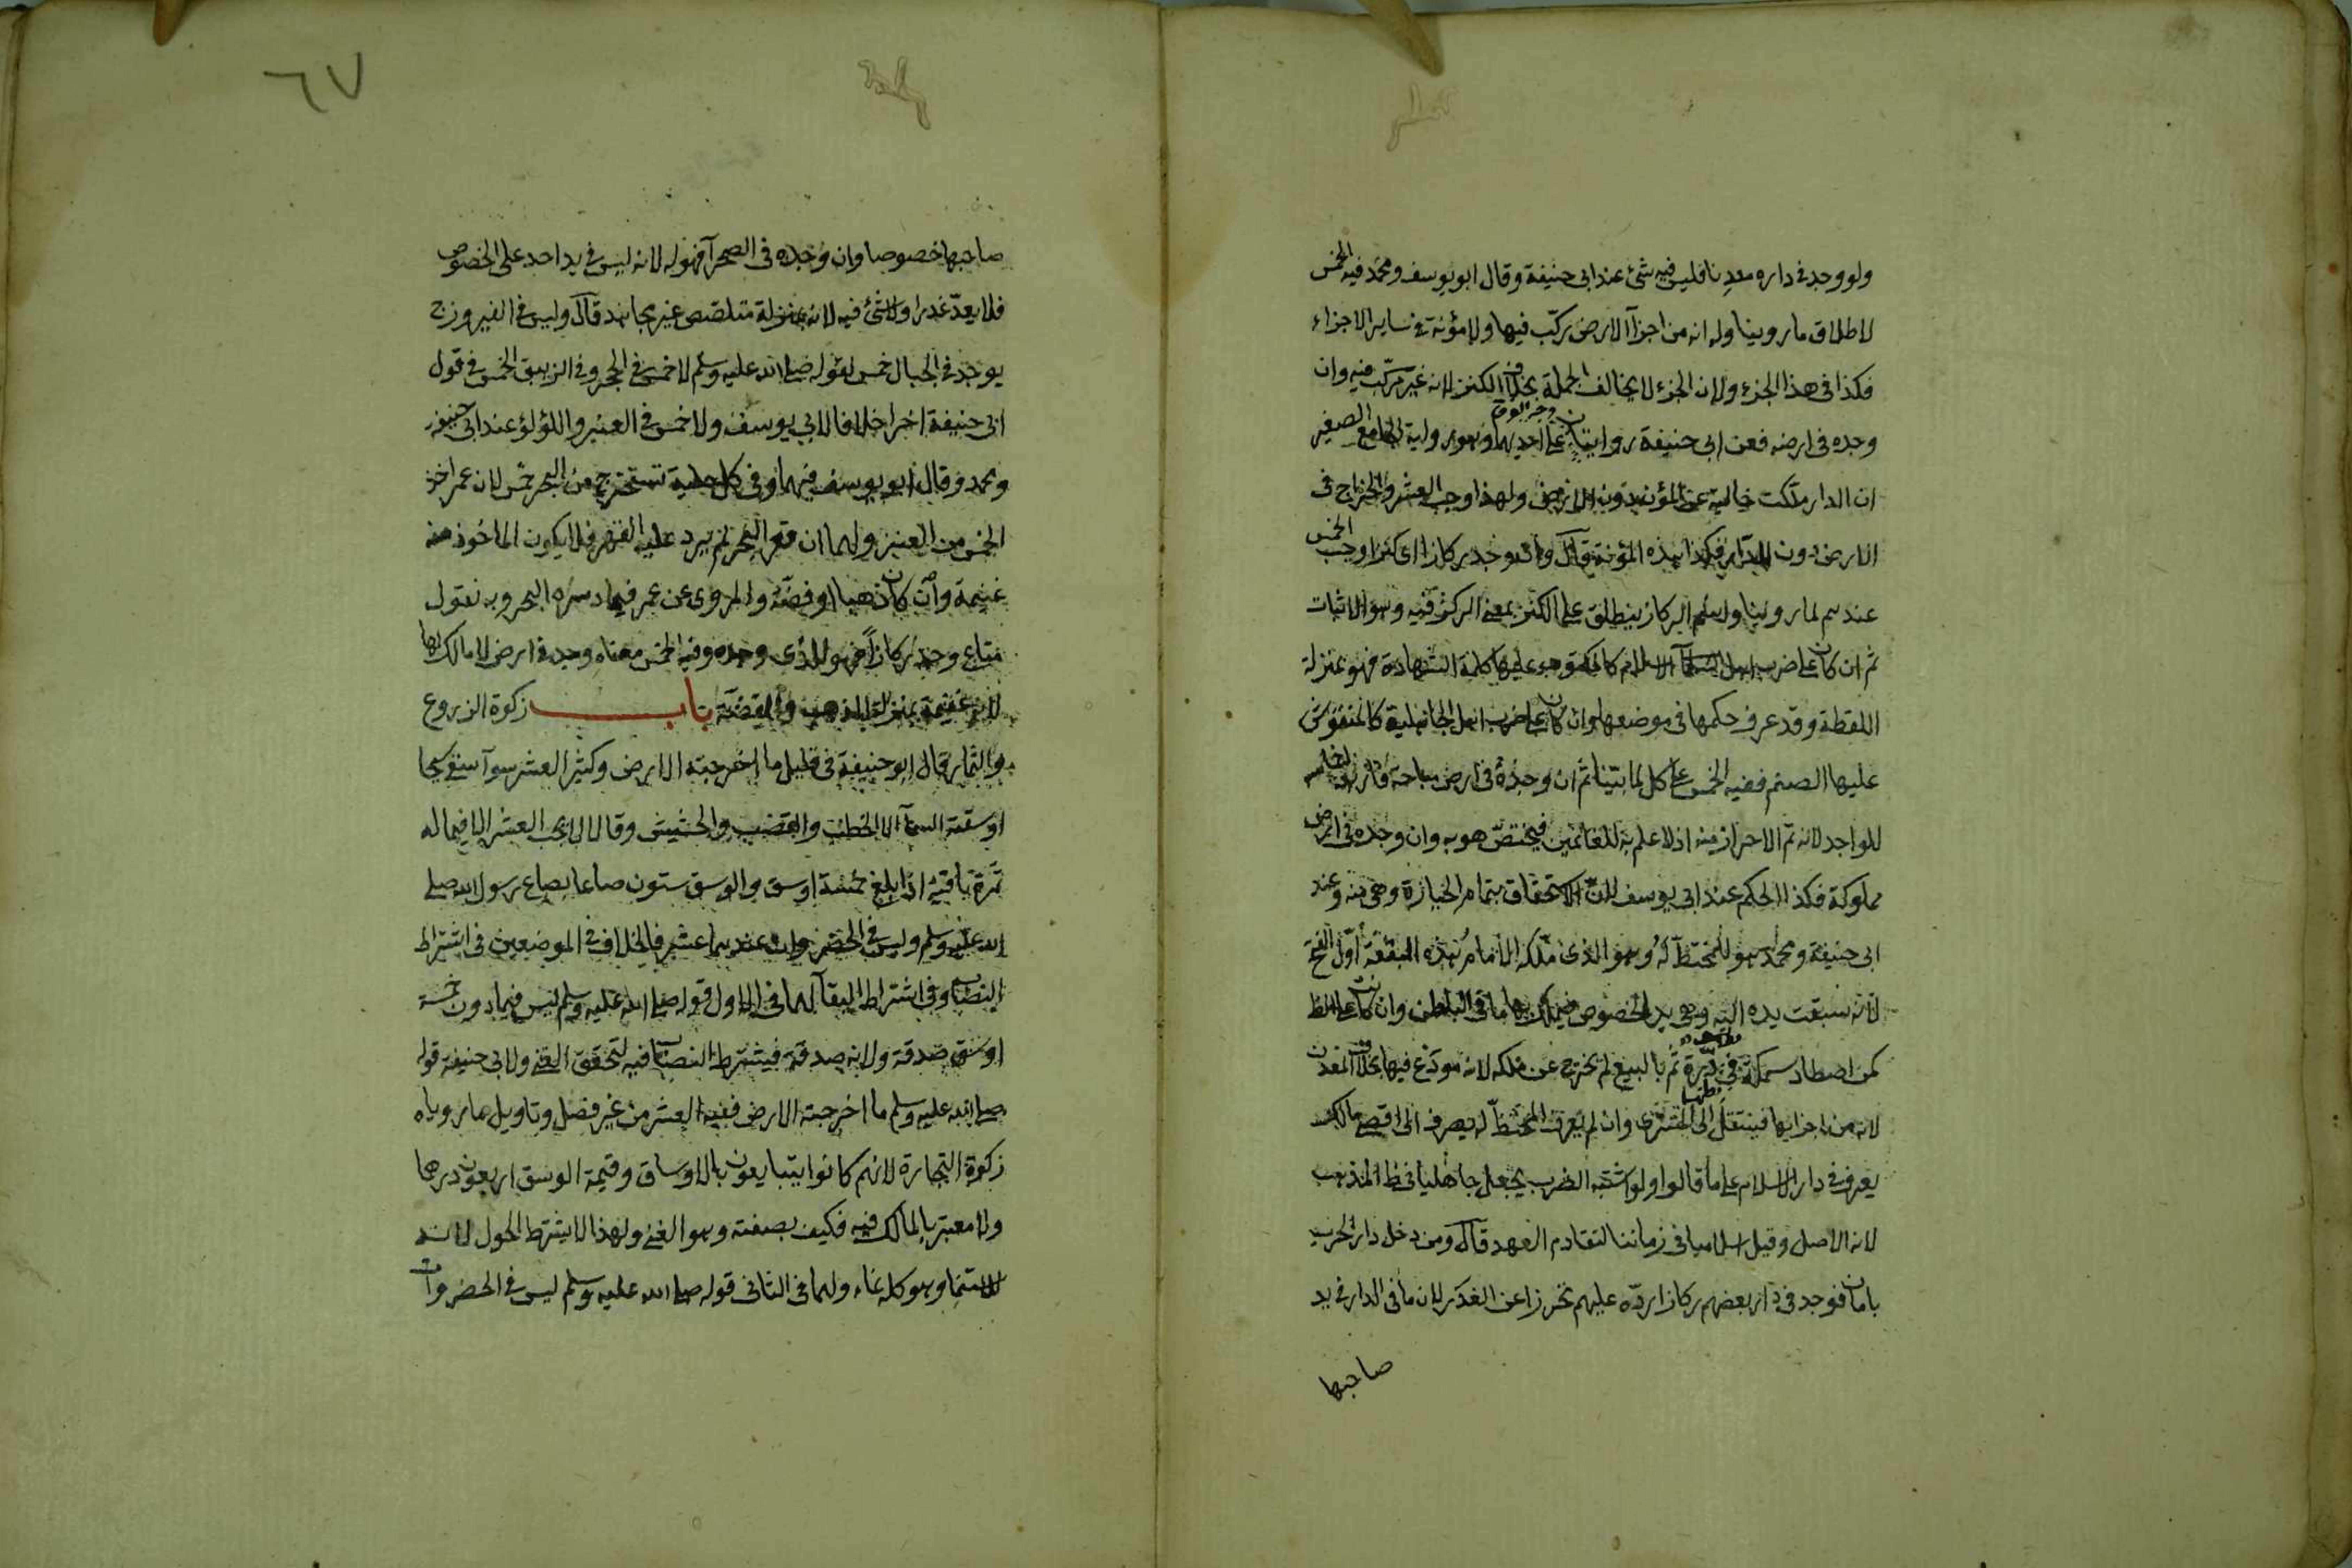 ولو وجد في داره معدنا فليس فيه شئ عند ابي حنيفة وقال ابو يوسف ومحمد فيه الخمس
لاطلاق ما روينا وله انه من اجزآ الارض مركب فيها ولا مؤنة في ساير الاجزاء
فكذا في هذا الجزء ولان الجزء لا يخالف الجملة بخلاف الكنز لانه غير مركب فيه وان
وجده في ارضه فعن ابي حنيفة روايتان وجه الفرق على احديهما وهو رواية الجامع الصغير
ان الدار ملكت خالية عن المؤن دون الارض ولهذا وجب العشر والخراج في
الارض دون الدار فكذا هذه المؤنة قال وان وجد ركازا اي كنزا وجب الخمس
عندهم لما روينا واسم الركاز ينطلق على الكنز بمعنى الركز فيه وهو الاثبات
ثم ان كان على ضرب اهل الاسلام كالمكتوب عليها كلمة الشهادة فهو بمنزلة
اللقطة وقد عرف حكمها في موضعها وان كان على ضرب اهل الجاهلية كالمنقوش
عليها الصنم ففيه الخمس على كل لما بينا ثم ان وجده في ارض مباحة فاربعة اخماسه
للواجد لانه تم الاحراز منه اذ لا علم به للغانمين فيختص هو به وان وجده في ارض
مملوكة فكذا الحكم عند ابي يوسف لان الاستحقاق بتمام الحيازة وهي منه وعند
ابي حنيفة ومحمد هو للمختط له وهو الذي ملكه الامام هذه البقعة اول الفتح
لانه سبقت يده اليه وهي يد الخصوص فيملك بها ما في الباطن وان كانت على الظا
كمن اصطاد سمكة في بطنها درة ثم بالبيع لم تخرج عن ملكه لانه مودع فيها بخلاف المعدن
لانه من اجزايها فينتقل الى المشتري وان لم يعرف المختط له يصرف الى اقصى مالك
يعرف في دار الاسلام على ما قالوا ولو اشتبه الضرب يجعل جاهليا في ظ المذهب
لانه الاصل وقيل اسلاميا في زماننا لتقادم العهد قال ومن دخل دار الحرب
بامان فوجد في دار بعضهم ركازا رده عليهم تحرزا عن الغدر لان ما في الدار في يد
صاحبها
٦٧
صاحبها خصوصا وان وجده في الصحرآ فهو له لانه ليس في يد احد على الخصوص
فلا يعد غدرا ولا شئ فيه لانه بمنزلة متلصص غير مجاهد قال وليس في الفيروزج
يوجد في الجبال خمس لقوله صلى الله عليه وسلم لا خمس في الحجر وفي الزيبق الخمس في قول
ابي حنيفة اخرا خلافا لابي يوسف ولا خمس في العنبر واللؤلؤ عند ابي حنيفة
ومحمد وقال ابو يوسف فيهما وفي كل حلية تستخرج من البحر خمس لان عمر اخذ
الخمس من العنبر ولهما ان قعر البحر لم يرد عليه القهر فلا يكون الماخوذ منه
غنيمة وان كان ذهبا او فضة والمروي عن عمر فيما دسره البحر وبه نقول
متاع وجد ركازا فهو للذي وجده وفيه الخمس معناه وجد في ارض لا مالك لها
لانه غنيمة بمنزلة الذهب والفضة باب زكوة الزروع
والثمار قال ابو حنيفة في قليل ما اخرجته الارض وكثير العشر سوآ سقي سيحا
او سقته السمآ الا الحطب والقصب والحشيش وقالا لا يجب العشر الا فيما له
ثمرة باقية اذا بلغ خمسة اوسق والوسق ستون صاعا بصاع رسول الله صلى
الله عليه وسلم وليس في الخضروات عندهما عشر فالخلاف في الموضعين في اشتراط
النصاب وفي اشتراط البقآ لهما في الاول قوله صلى الله عليه وسلم ليس فيما دون خمسة
اوسق صدقة ولانه صدقة فيشترط النصاب فيه لتحقق الغنى ولابي حنيفة قوله
صلى الله عليه وسلم ما اخرجته الارض ففيه العشر من غير فصل وتاويل ما روياه
زكوة التجارة لانهم كانوا يتبايعون بالاوساق وقيمة الوسق اربعون درهما
ولا معتبر بالمالك فيه فكيف بصفته وهو الغنى ولهذا لا يشترط الحول لانه
للاستنما وهو كله نماء ولهما في الثاني قوله صلى الله عليه وسلم ليس في الخضروات